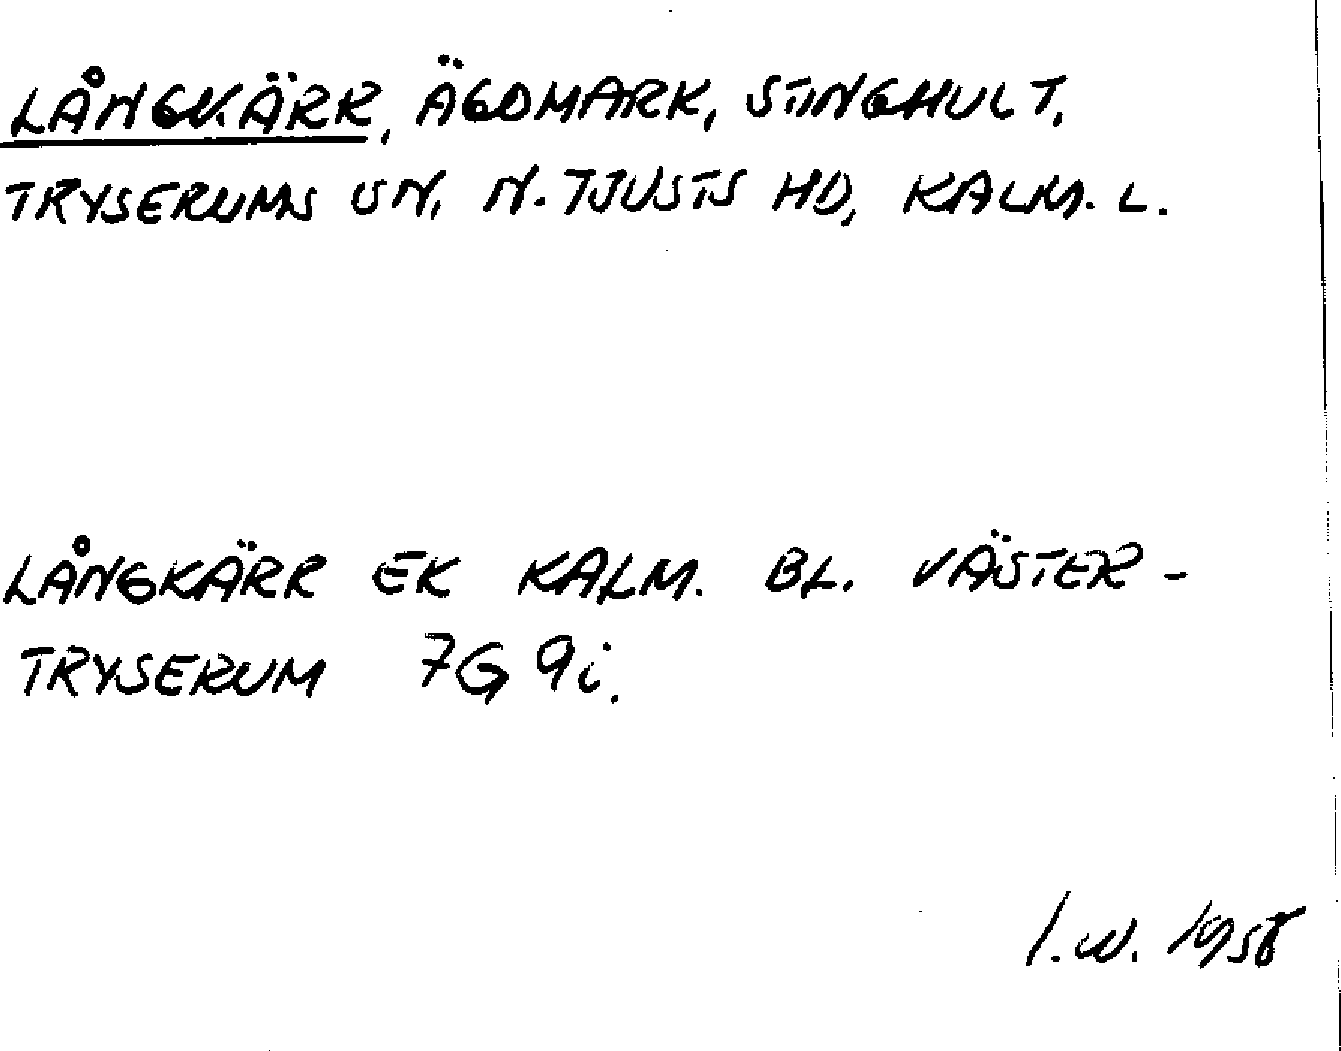 LÅNGKÄRR, ÄGOMARK, STINGHULT.
TRYSERUMS SN, N. TJUSTS HD, KALM. L.
LÅNGKÄRR EK KALM. BL. VÄSTER-
TRYSERUM 7G 9i.
I.W. 1958